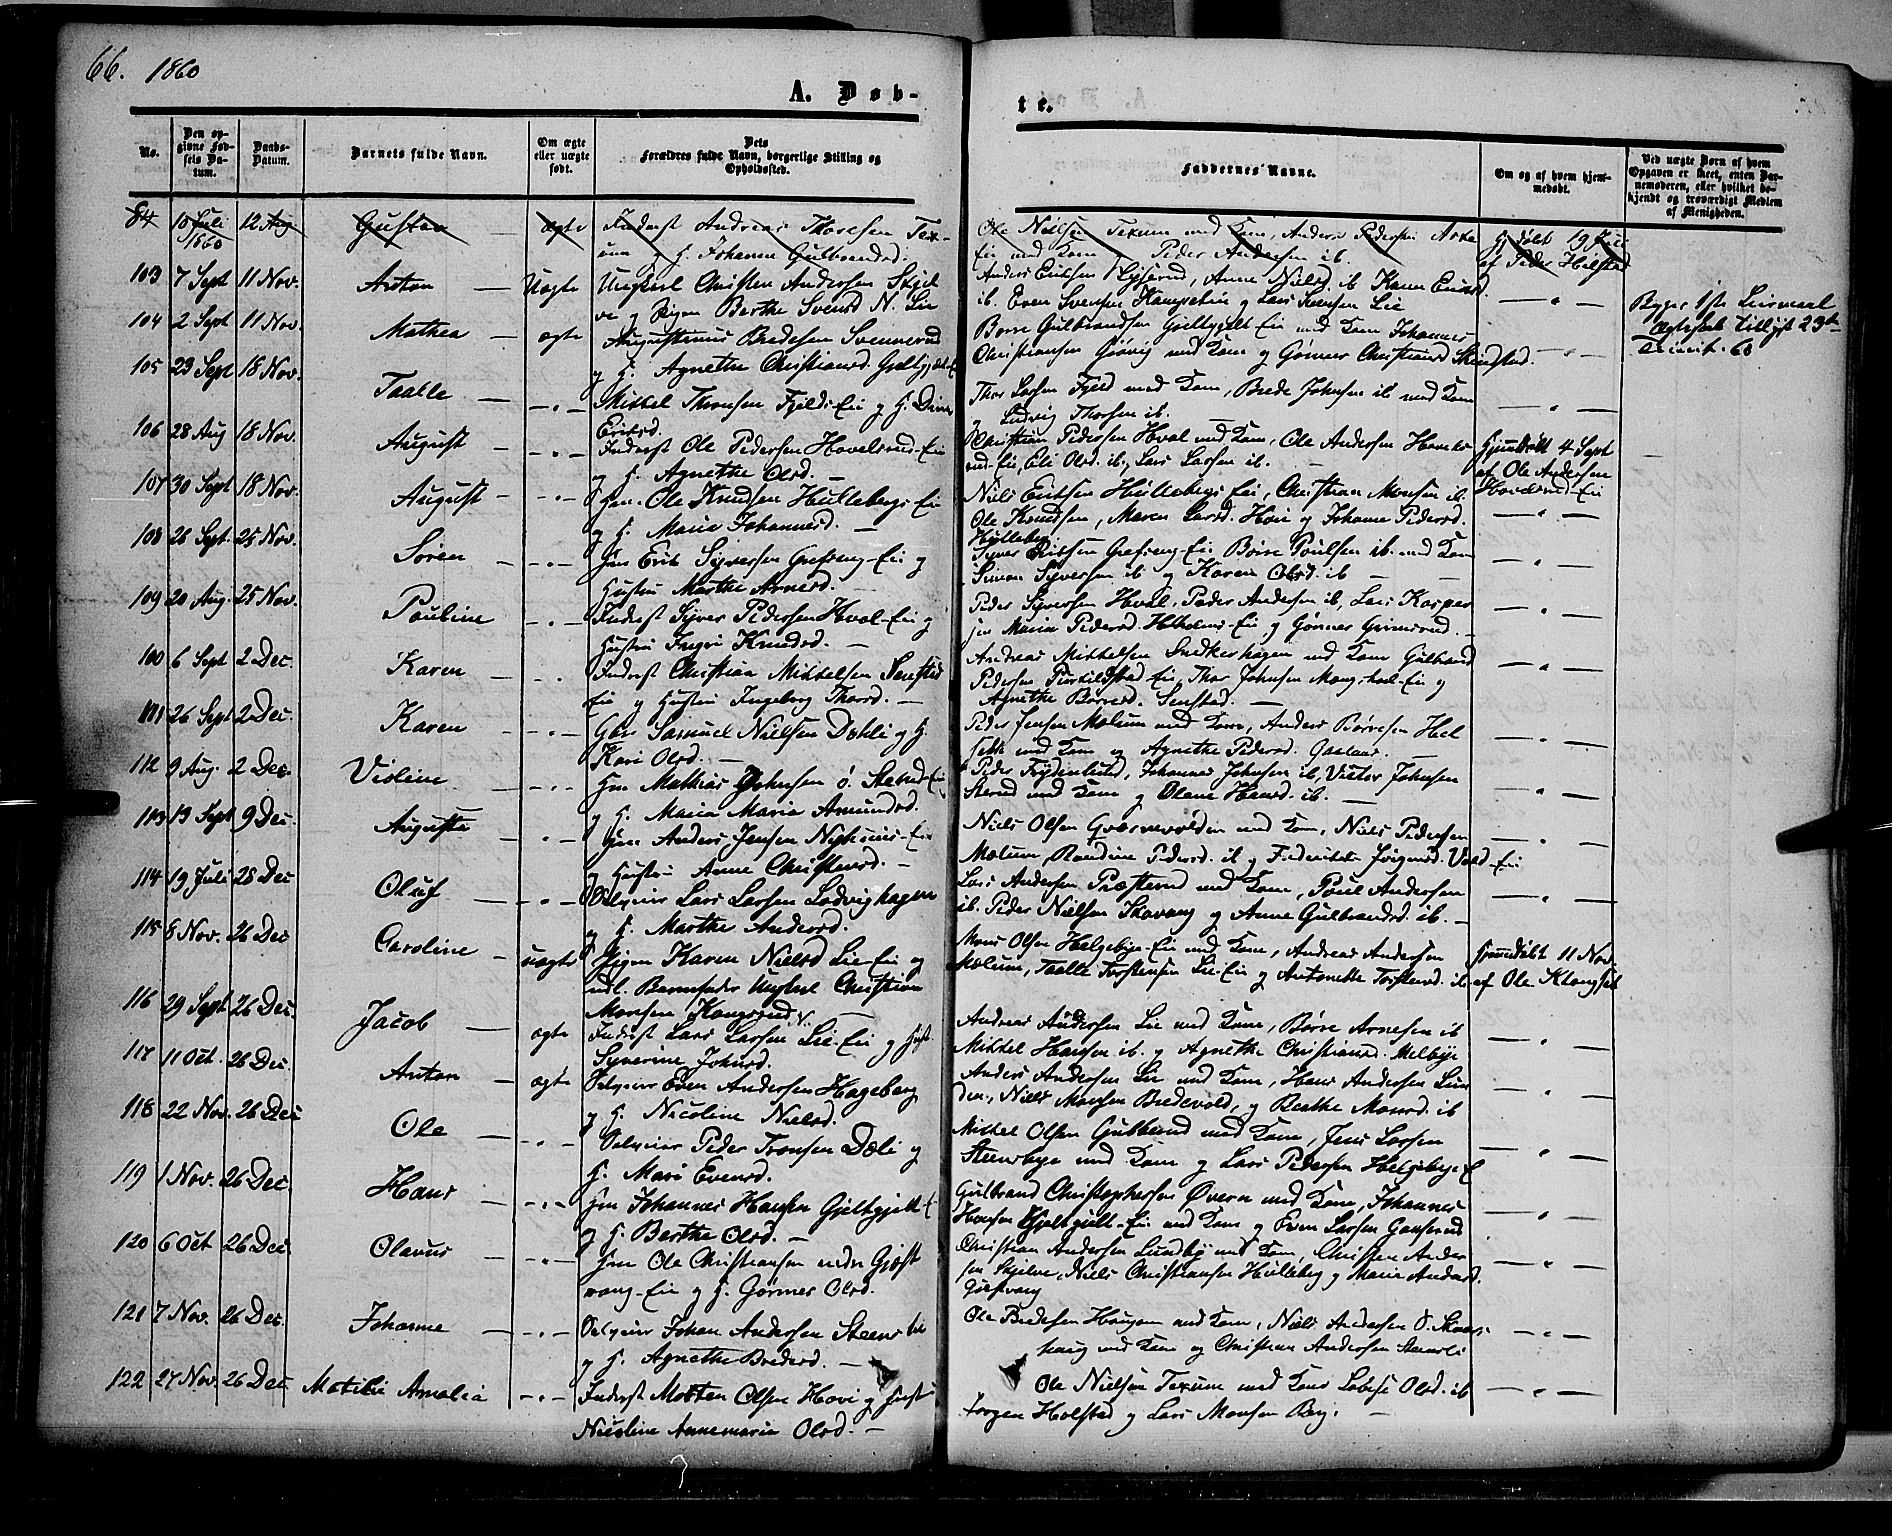 66. 1860
A. Døb-
te.
No.
Den op-
givne Fød-
sels Da-
tum.
Daabs-
Datum.
Barnets fulde Navn.
Om ægte
eller uægte
født.
Dets
Forældres fulde Navn, borgerlige Stilling og
Opholdssted.
Faddernes Navne.
Om og af hvem hjem-
medøbt.
Ved uægte Børn af hvem
Opgaven er skeet, enten Bar-
nemoderen, eller hvilket be-
kjendt og troværdigt Medlem
af Menigheden.
84 10 Juli 1860 12 Aug. Gustav ægte Inderst Andreas Thoresen Tex-
um og H. Johanne Gulbrandsd.
Ole Nielsen Texum med Kone, Anders Pedersen
Eie med Kone Peder Andersen ib.
Hj. døbt 19 Juli
af Peder Holstad
103 7 Sept 11 Nov. Anton Uægte Ungkarl Christen Andersen Skjel-
ve og Pigen Berthe Svensd. N. Lie
Anders Eriksen, Anne Nielsd. ib Karen Eriksd.
ib. Even Svensen og Lars Hansen Lie
104 2 Sept 11 Nov. Mathea ægte Augustinus Bredesen Svennerud
og H. Agnethe Christiansd.
Børre Gulbrandsen Gjeltgjelt Eie med Kone Johannes
Christiansen Gjøvig med Kone og Gørner Christiansd.
105 23 Sept 18 Nov. Taalle Mikkel Thronsen Fjelds-Eie og H.
Eriksd.
Thor Larsen Fjeld med Kone, Brede Johnsen ib med Kone
Ludvig Thorsen ib.
106 28 Aug 18 Nov. August Inderst Ole Pedersen Hovelsrud-Eie
og H. Agnethe Olsd.
Christian Pedersen Hval med Kone, Ole Andersen Hovels-
rud-Eie, Eli Olsd. ib., Lars Larsen ib.
Hjemdøbt 4 Sept
af Ole Andersen
Hovelsrud-Eie
107 30 Sept 18 Nov. August Hm. Ole Knudsen Hulleberg-Eie
og H. Maria Johannesd.
Niels Eriksen Hulleberg Eie, Christian Monsen ib.
Ole Knudsen, Maren Larsd. Hovi og Johanne Pedersd.
Hulleberg
108 26 Sept. 25 Nov. Søren Hm Erik Syversen Grefseng-Eie og
Hustru Marthe Arnesd.
Syver Eriksen Grefseng-Eie Børre Poulsen ib. med Kone
Simon Syversen ib og Karen Olsd. ib
109 20 Aug. 25 Nov. Pauline Inderst Syver Pedersen Hval-Eie og
Hustru Ingri Knudsd.
Peder Syversen Hval, Peder Andersen ib, Lars Kasper-
sen Maria Pedersd. og Gørner
100 6 Sept 2 Dec. Karen Inderst Christian Mikkelsen Senstad
Eie og Hustru Ingeborg Thorsd.
Andreas Mikkelsen Snekkerhagen med Kone Gulbrand
Pedersen Eie, Thor Johnsen og
Agnethe Børresd. Senstad.
26 Sept 2 Dec. Karen Gbr. Samuel Nielsen Dæhli og H.
Kari Olsd.
Peder Jensen Mælum med Kone, Anders Børresen Hel-
med Kone og Agnethe Pedersd.
112 9 Aug. 2 Dec. Violine Hm Mathias Johnsen ø. Eie
og H. Maria Maria Amundsd.
Peder Frydenlund, Johannes Johnsen ib, Victor Johnsen
med Kone og Olene Hansd. ib.
113 13 Sept 9 Dec. Augusta Hm Anders Jensen Nyhuus-Eie
og Hustru Anne Christensd.
Niels Olsen Qværnevolden med Kone, Niels Pedersen
Mælum, Randine Pedersd. ib og Jørgensd. Vold-Eie
114 19 Juli 25 Dec Oluf Selveier Lars Larsen Lodvighagen
og H. Marthe Andersd.
Lars Andersen Præsterud med Kone, Poul Andersen
ib. Peder Nielsen Skovang og Anne Gulbrandsd. ib.
115 8 Nov. 26 Dec Caroline uægte Pigen Karen Nielsd Lie-Eie og
udl. Barnefader Ungkarl Christian
Monsen
Mons Olsen Helgebye-Eie med Kone, Andreas Andersen
Mælum, Taalle Torstensen Lie-Eie og Antonette Torstensd. ib.
Hjemmedøbt 11 Nov.
af Ole Klangset
116 29 Sept 26 Dec. Jacob ægte Inderst Lars Larsen N. Lie-Eie og Hust.
Syverine Johnsd.
Andreas Andersen Lie med Kone, Børre Arnesen ib
Mikkel Hansen ib. og Agnethe Christiansd. Melbye
117 11 Oct. 26 Dec. Anton ægte Selveier Even Andersen Hageberg
og H. Nicoline Nielsd.
Anders Andersen Lie med Kone, Hans Andersen Lun-
den, Niels Monsen Bredevold, og Beathe Monsd. ib
118 22 Nov. 26 Dec Ole Selveier Peder Tronsen Dæli og
H. Mari Evensd.
Mikkel Olsen Gubberud med Kone, Jens Larsen
Steensbye med Kone og Lars Pedersen Helgebye-E
119 1 Nov. 26 Dec. Hans Hm Johannes Hansen Gjeltgjelt-E
og H. Berthe Olsd.
Gulbrand Christophersen Øvern med Kone, Johannes
Hansen Gjeltgjelt-Eie med Kone og Even Larsen Gaaserud
120 6 Oct 26 Dec. Olevus Hm Ole Christiansen nedre Gjest-
vang-Eie og H. Gørner Olsd.
Christian Andersen Lundby med Kone, Christen Ander-
sen Skjelve, Niels Christiansen Hulleberg og Maria Andersd.
Gjestvang
121 7 Nov. 26 Dec. Johanne Selveier Johan Andersen Steensli
og H. Agnethe Bredesd.
Ole Bredesen Haugom med Kone, Niels Andersen
haug med Kone og Christian Andersen Steensli
122 27 Nov. 26 Dec. Matilie Amalia Inderst Morten Olsen Hovi og Hust.
Nicoline Annemaria Olsd.
Ole Nielsen Texum med Kone Lovise Olsd. ib
Jørgen Holstad og Lars Monsen Berg.